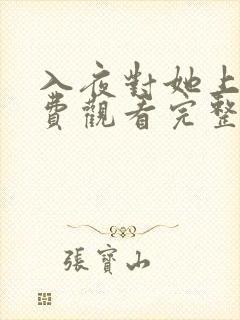 入夜對她上
費觀看完整
張寶山